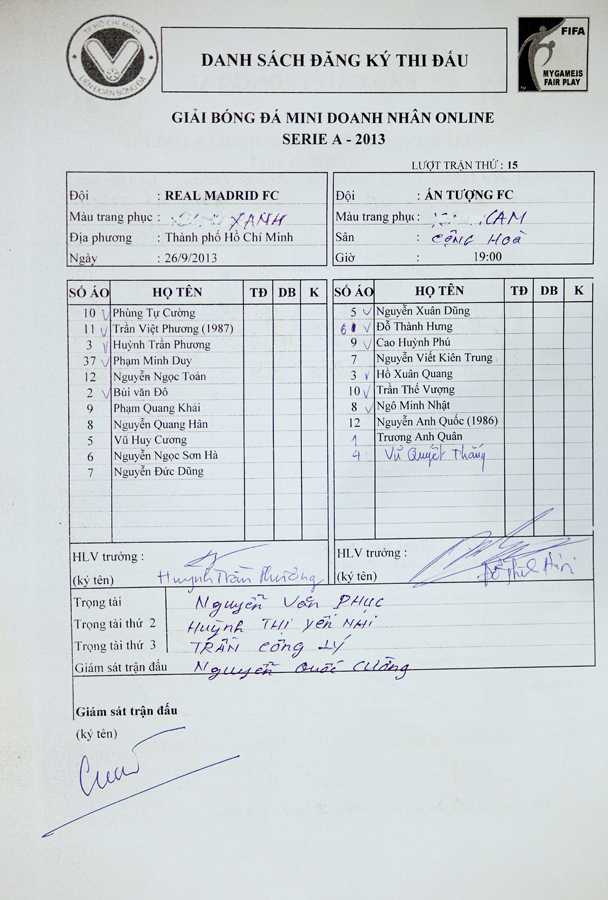 TP HỒ CHÍ MINH
LIÊN ĐOÀN BÓNG ĐÁ
DANH SÁCH ĐĂNG KÝ THI ĐẤU
FIFA
MYGAMEIS
FAIR PLAY
GIẢI BÓNG ĐÁ MINI DOANH NHÂN ONLINE
SERIE A - 2013
LƯỢT TRẬN THỨ : 15
Đội : REAL MADRID FC
Màu trang phục : XANH
Địa phương : Thành phố Hồ Chí Minh
Ngày : 26/9/2013
Đội : ẤN TƯỢNG FC
Màu trang phục : CAM
Sân : CỘNG HOÀ
Giờ : 19:00
SỐ ÁO HỌ TÊN TĐ DB K
10 Phùng Tự Cường
11 Trần Việt Phương (1987)
3 Huỳnh Trần Phương
37 Phạm Minh Duy
12 Nguyễn Ngọc Toản
2 Bùi văn Đô
9 Phạm Quang Khải
8 Nguyễn Quang Hân
5 Vũ Huy Cương
6 Nguyễn Ngọc Sơn Hà
7 Nguyễn Đức Dũng
SỐ ÁO HỌ TÊN TĐ DB K
5 Nguyễn Xuân Dũng
6 Đỗ Thành Hưng
9 Cao Huỳnh Phú
7 Nguyễn Viết Kiên Trung
3 Hồ Xuân Quang
10 Trần Thế Vượng
8 Ngô Minh Nhật
12 Nguyễn Anh Quốc (1986)
1 Trương Anh Quân
4 Vũ Quyết Thắng
HLV trưởng :
(ký tên) Huỳnh Trần Phương
HLV trưởng :
(ký tên)
Trọng tài Nguyễn Văn PHỤC
Trọng tài thứ 2 HUỲNH THỊ YẾN NHI
Trọng tài thứ 3 TRẦN CÔNG LÝ
Giám sát trận đấu Nguyễn Quốc Cường
Giám sát trận đấu
(ký tên)